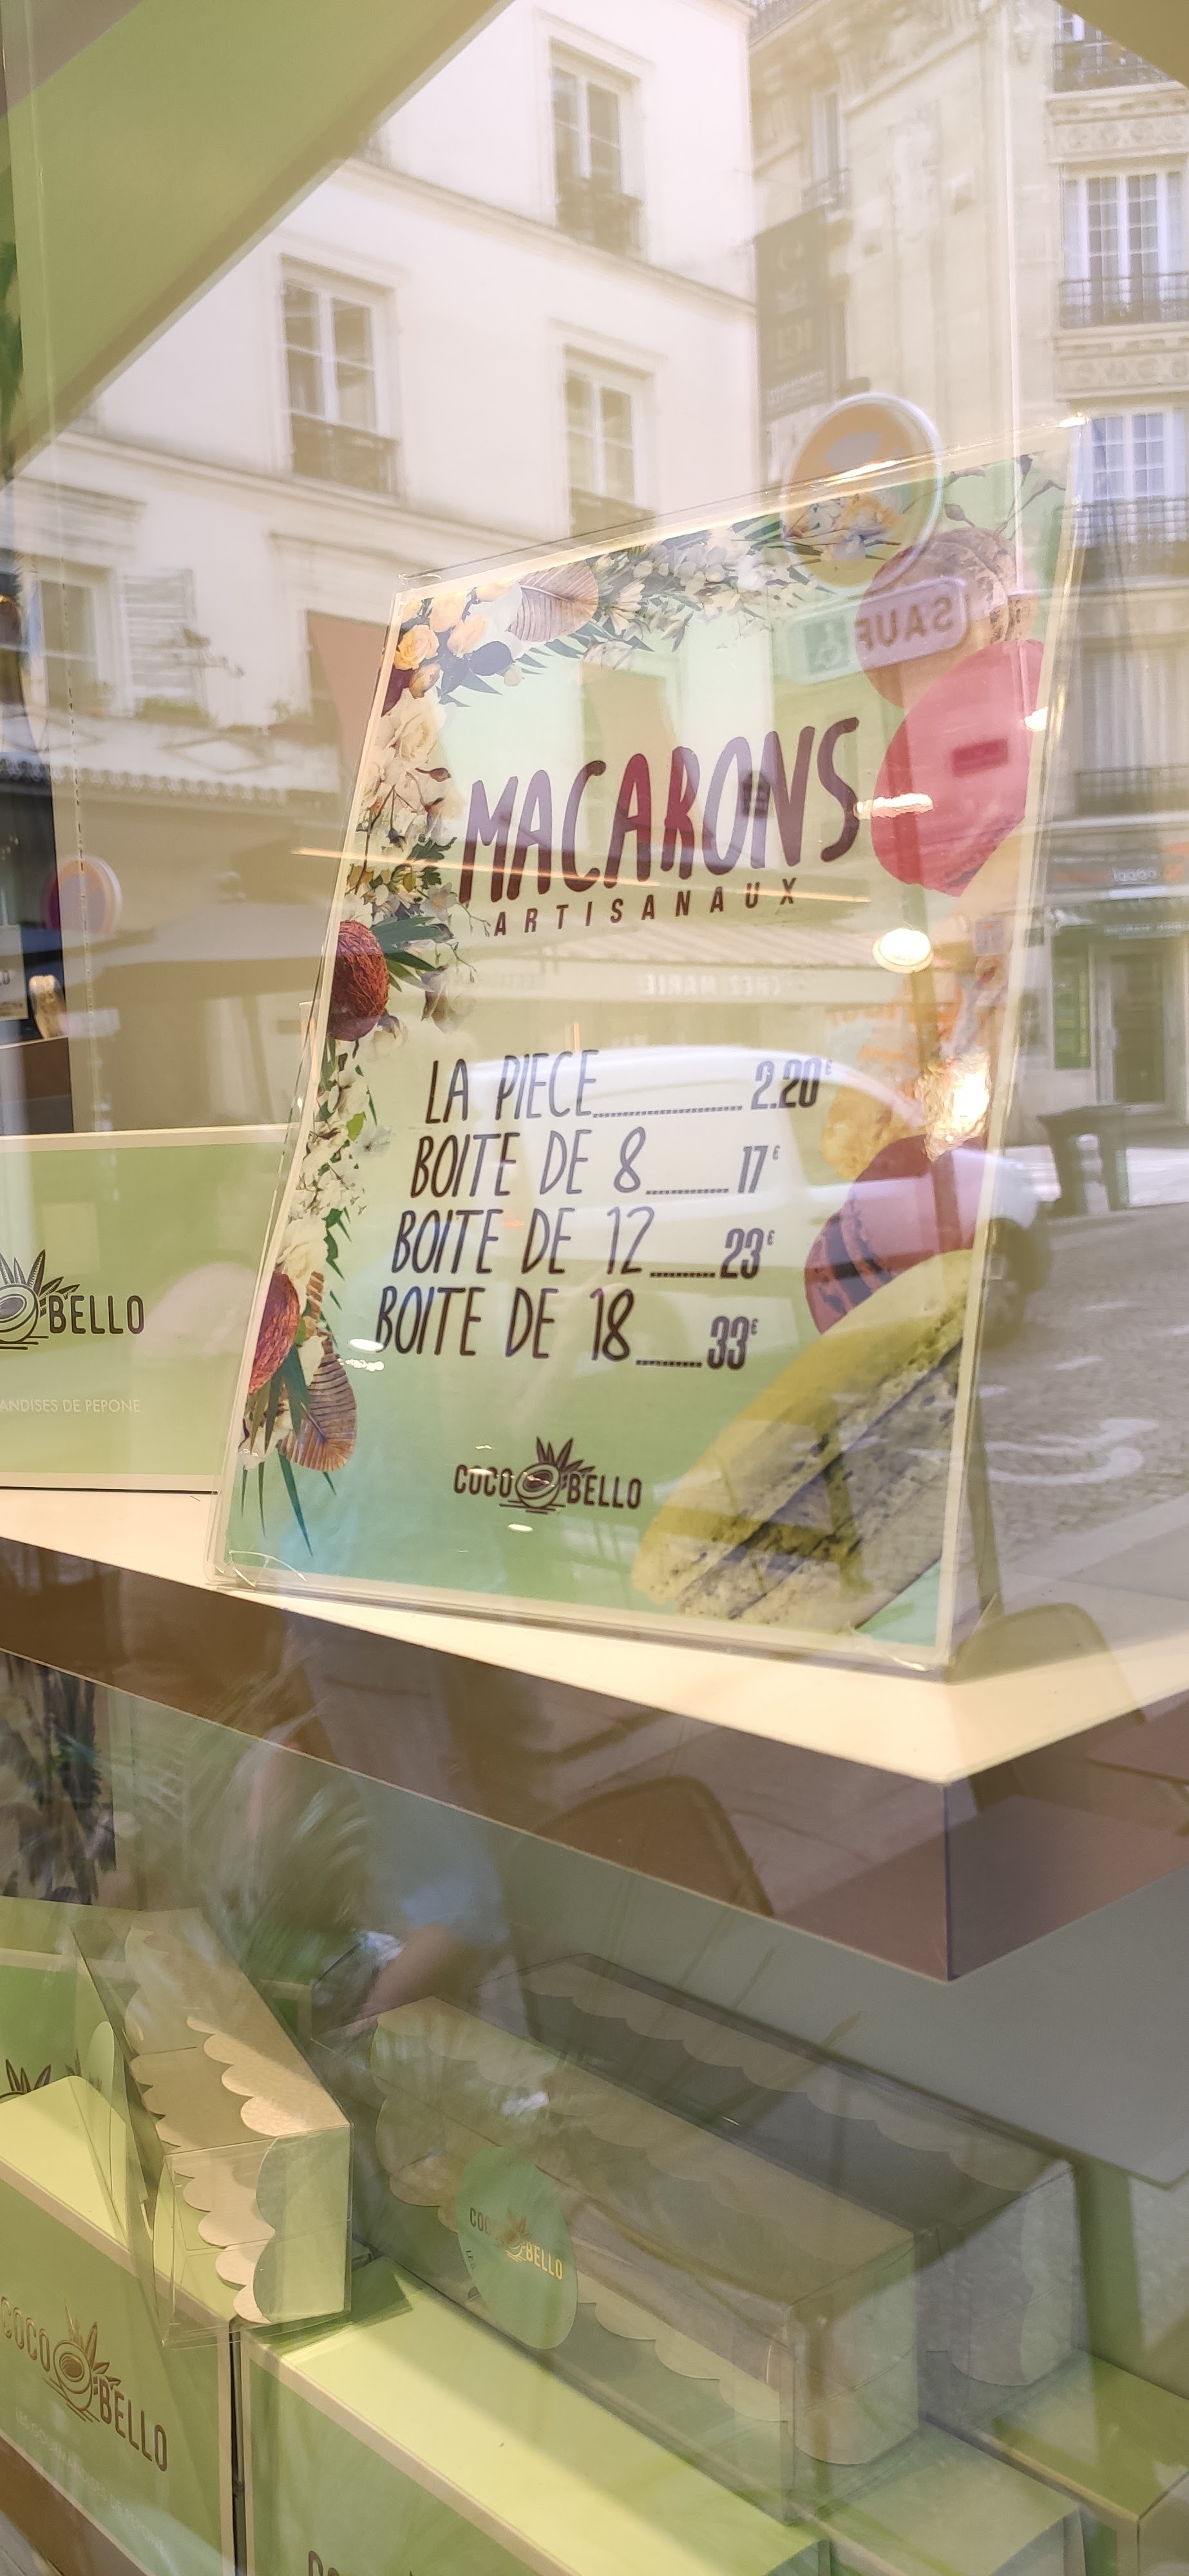 SAUF
MACARONS
ARTISANAUX
CHEZ MARIE
LA PIECE 2.20€
BOITE DE 8 17€
BOITE DE 12 23€
BOITE DE 18 33€
BELLO
ANDISES DE PEPONE
COCO BELLO
COCO BELLO
COCO
BELLO